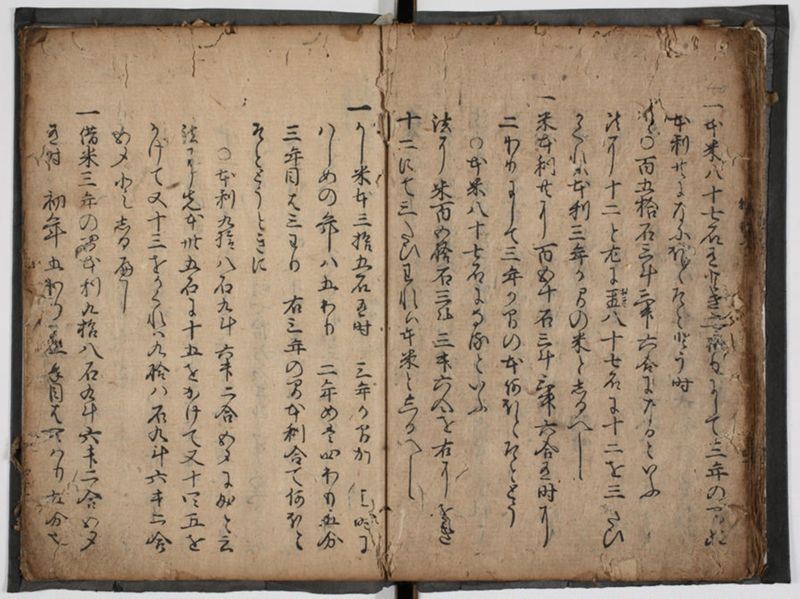 一本米八十七石有時 二わりにして三年の間に
本利共になにほどぞととう時
〇百五拾石三斗三升六合になるといふ
法に十二と左に置八十七石に十二を三たひ
かくれは本利三年の間の米としるへし
一米本利共に百五十石三斗三升六合有時に
二わりにして三年の間の本何ほとそととう
〇本米八十七石になるといふ
法に米百五拾石三斗三升六合を右にをき
十二にて三たひわれは本米としるへし
一かし米本三拾五石有時 三年の間
はしめの年ハ五わり 二年めは四わり五分
三年目は三わり 右三年の間本利合て何ほと
そととうときに
〇本利九拾八石九斗六升二合五夕になると云
法に先本卅五石に十五をかけて又十四五を
かけて又十三をかくれハ九拾八石九斗六升二合
五夕としるへし
一借米三年の間本利九拾八石九斗六升二合五夕
有時 初年五わり 年目は四わり五分